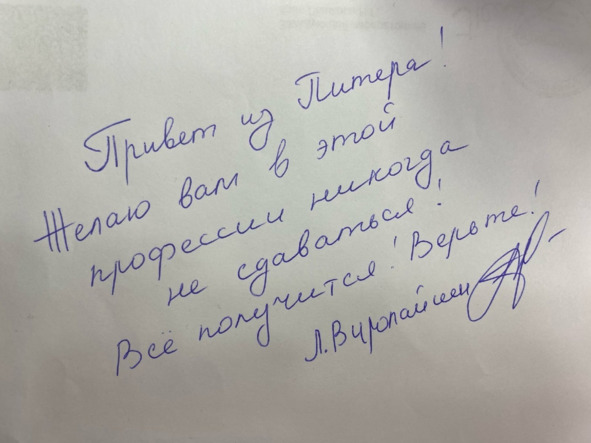 Привет из Питера!
Желаю вам в этой
профессии никогда
не сдаваться!
Всё получится! Верьте!
Л. Виролайнен